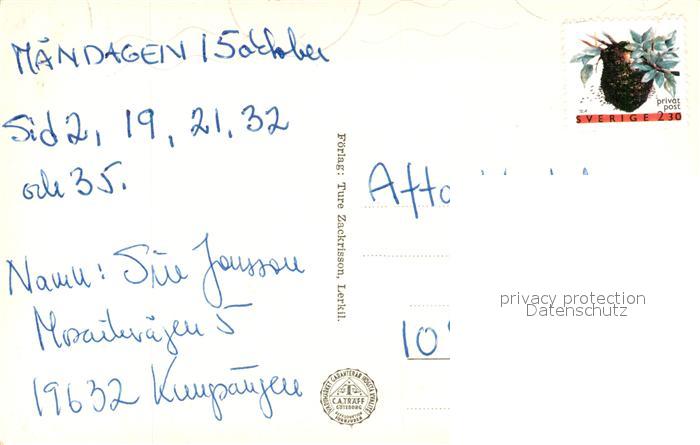 MÅNDAGEN 15 oktober
Sid 2, 19, 21, 32
och 35.
Namn: Siw Jonsson
Mosaikvägen 5
19632 Kungsängen
Förlag: Ture Zackrisson, Lerkil.
C.A. TRÄFF
GÖTEBORG
privat
post
SVERIGE 2.30
Afto
10
privacy protection
Datenschutz